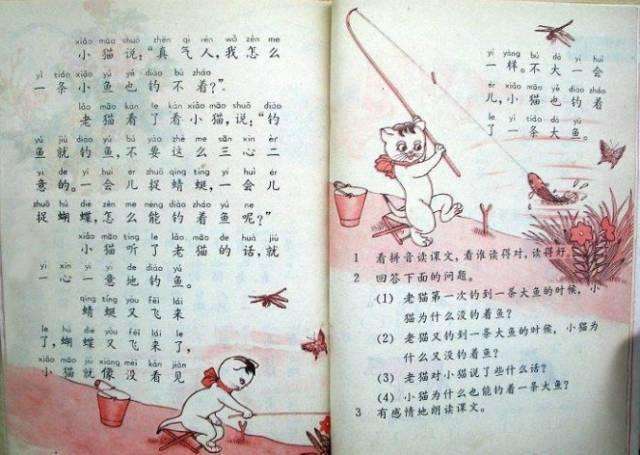 xiǎo māo shuō zhēn qì rén wǒ zěn me
小猫说:“真气人,我怎么
yì tiáo xiǎo yú yě diào bù zháo
一条小鱼也钓不着?”
lǎo māo kàn le kàn xiǎo māo shuō diào
老猫看了看小猫,说:“钓
yú jiù diào yú bú yào zhè me sān xīn èr
鱼就钓鱼,不要这么三心二
yì de yí huì ér zhuō qīng tíng yí huì ér
意的。一会儿捉蜻蜓,一会儿
zhuō hú dié zěn me néng diào zháo yú ne
捉蝴蝶,怎么能钓着鱼呢?”
xiǎo māo tīng le lǎo māo de huà jiù
小猫听了老猫的话,就
yì xīn yí yì de diào yú
一心一意地钓鱼。
qīng tíng yòu fēi lái
蜻蜓又飞来
le hú dié yòu fēi lái le
了,蝴蝶又飞来了,
xiǎo māo jiù xiàng méi kàn jiàn
小猫就像没看见
yí yàng bú dà yí huì
一样。不大一会
ér xiǎo māo yě diào zháo
儿,小猫也钓着
le yì tiáo dà yú
了一条大鱼。
1 看拼音读课文,看谁读得对,读得好。
2 回答下面的问题。
(1) 老猫第一次钓到一条大鱼的时候,小
猫为什么没钓着鱼?
(2) 老猫又钓到一条大鱼的时候,小猫为
什么又没钓着鱼?
(3) 老猫对小猫说了些什么话?
(4) 小猫为什么也能钓着一条大鱼?
3 有感情地朗读课文。